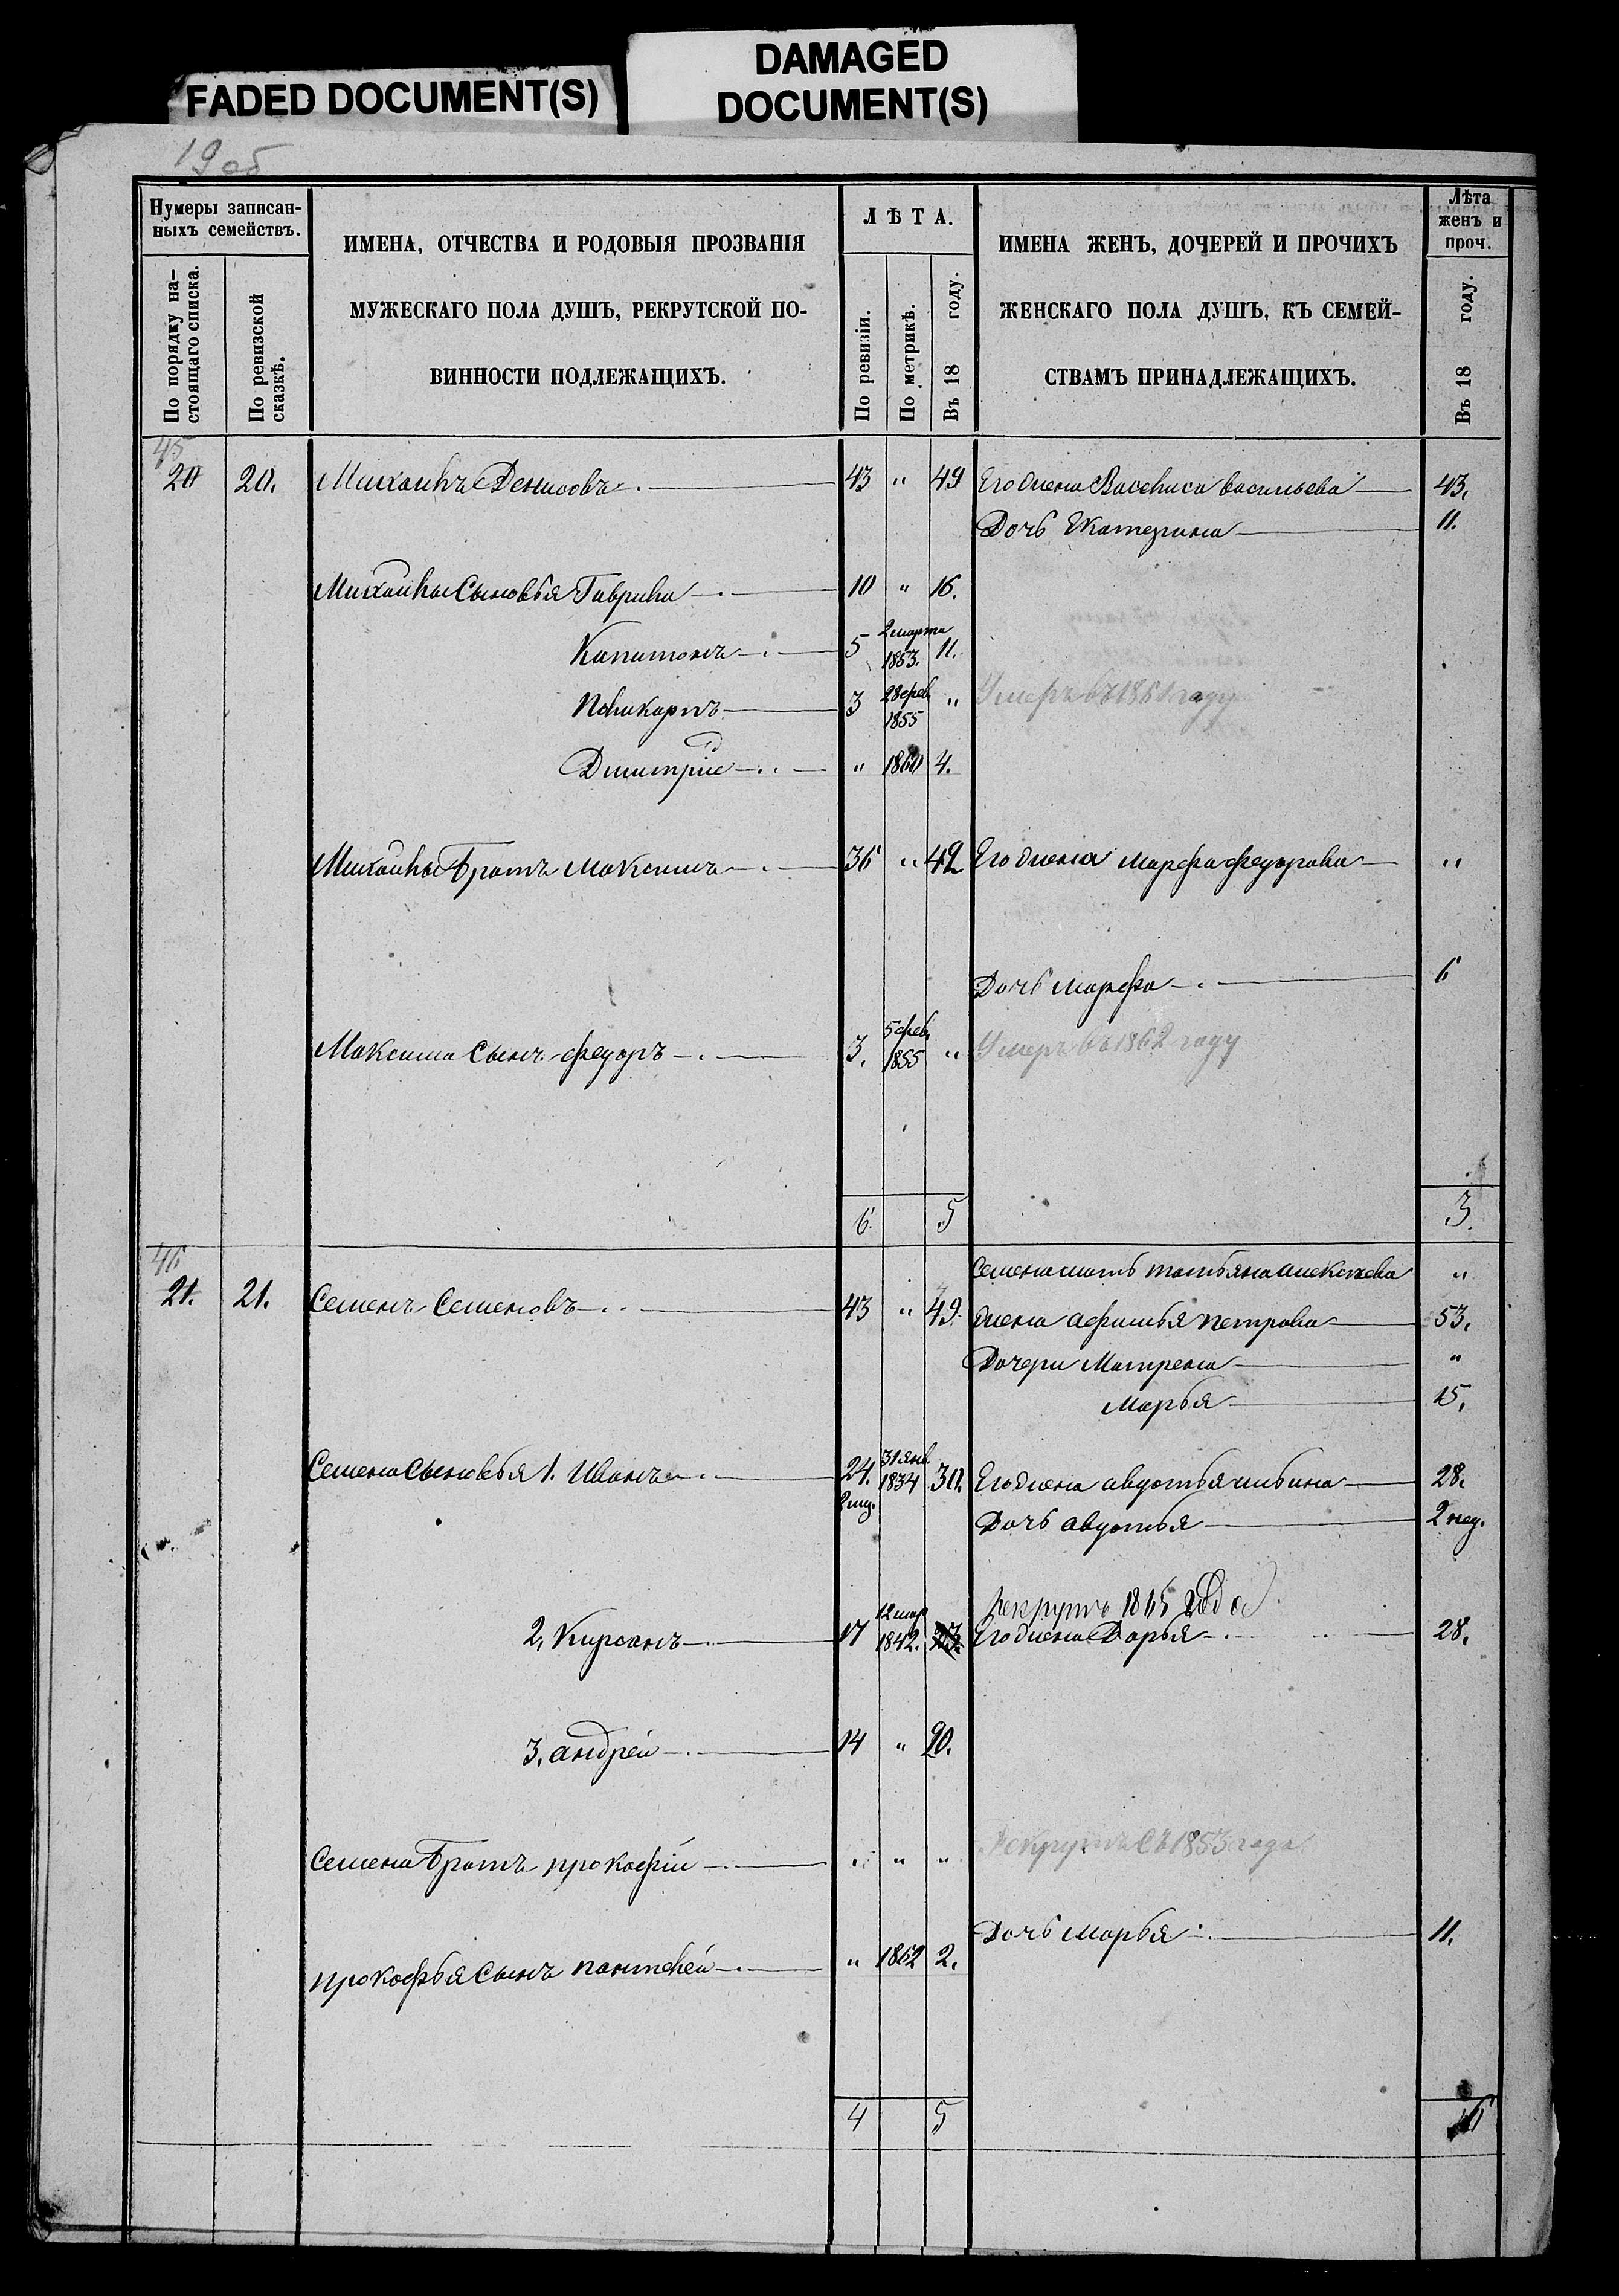 FADED DOCUMENT(S)
DAMAGED
DOCUMENT(S)
19 об
Нумеры записан-
ныхъ семействъ.
По порядку на-
стоящаго списка.
По ревизской
сказкѣ.
ИМЕНА, ОТЧЕСТВА И РОДОВЫЯ ПРОЗВАНІЯ
МУЖЕСКАГО ПОЛА ДУШЪ, РЕКРУТСКОЙ ПО-
ВИННОСТИ ПОДЛЕЖАЩИХЪ.
ЛѢТА.
По ревизіи.
По метрикѣ.
Въ 18 году.
ИМЕНА ЖЕНЪ, ДОЧЕРЕЙ И ПРОЧИХЪ
ЖЕНСКАГО ПОЛА ДУШЪ, КЪ СЕМЕЙ-
СТВАМЪ ПРИНАДЛЕЖАЩИХЪ.
Лѣта
женъ и
проч.
Въ 18 году.
45
20 20. Михаилъ Денисовъ 43 " 49 Его жена Васелиса васильева 43.
Дочь Екатерина 11.
Михаилы Сыновья Гаврила 10 " 16.
Капитонъ 5 2 марта 1853. 11.
Поликарпъ 3 28 фев 1855 " Умеръ въ 1861 году
Димитрій " 1860 4.
Михаилы Братъ Максимъ 36 " 42 Его жена марфа федорова "
Дочь марфа 6
Максима Сынъ федоръ 3. 5 фев. 1855 " Умеръ въ 1862 году
6. 5 3.
46
Семена мать татьяна алексѣева "
21. 21. Семенъ Семеновъ 43 " 49. жена афимья петрова 53.
Дочери Матрена "
Марья 15.
Семена Сыновья 1. Иванъ 24. 31 янв. 1834 30. Его жена авдотья ильина 28.
Дочь авдотья 2 нед.
рекрутъ 1865 года
2. Кирсанъ 17 12 мар 1842. Его жена Дарья 28.
3. андрей 14 " 20.
Семена Братъ прокофій " " " Рекрутъ съ 1853 года
Дочь марья 11.
прокофья Сынъ пантелей " 1862 2.
4 5